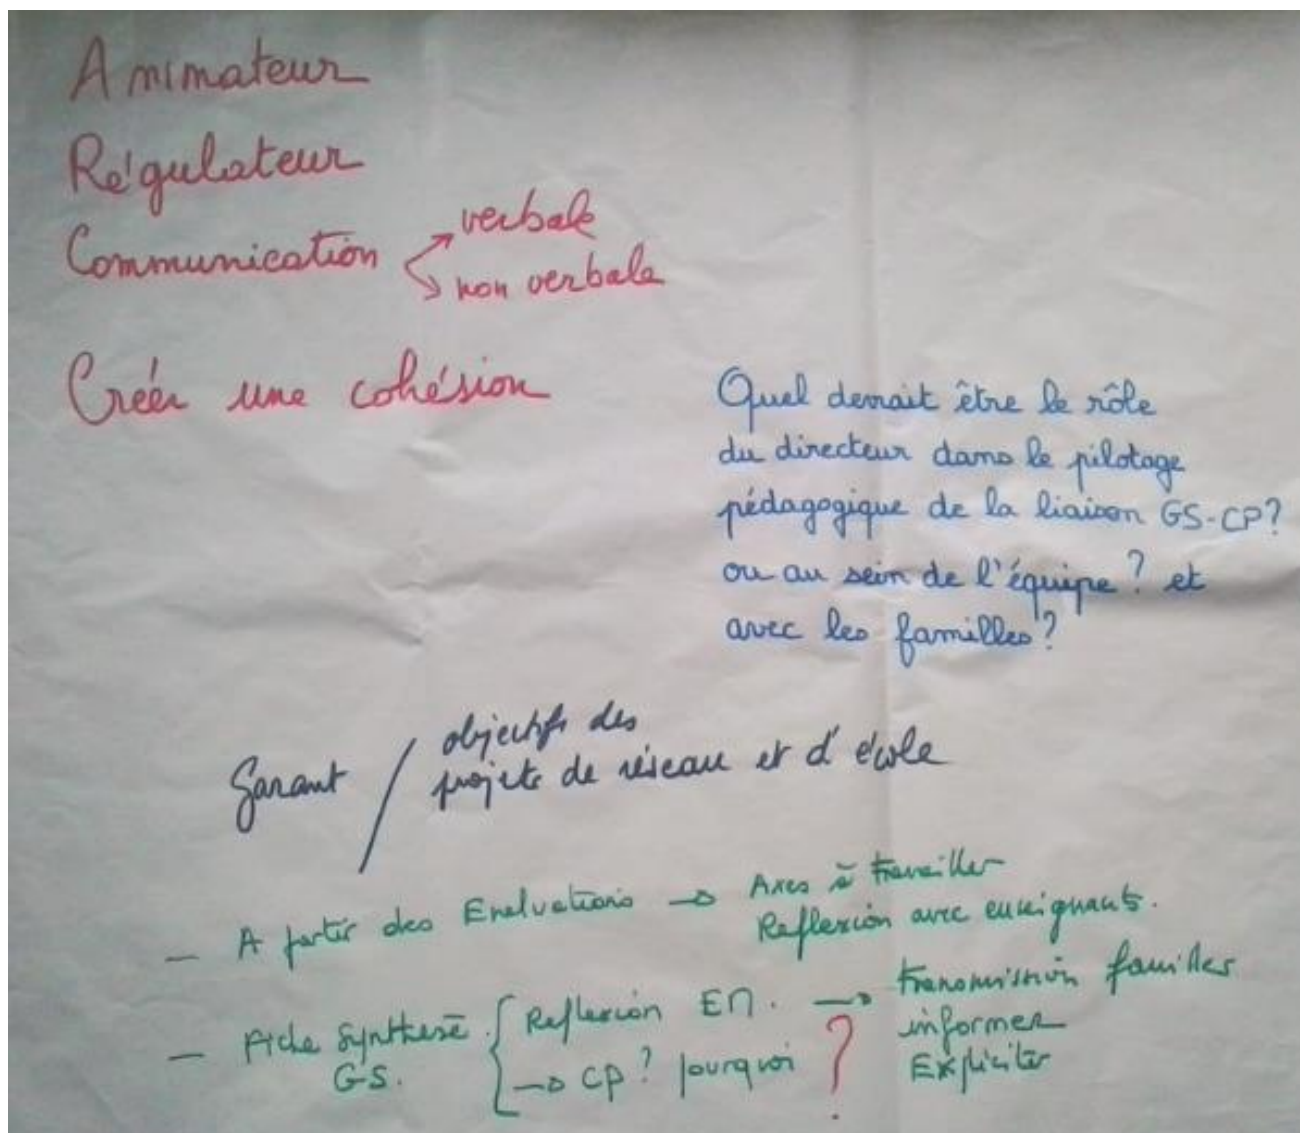 Animateur
Régulateur
Communication
verbale
non verbale
Créer une cohésion
Quel devrait être le rôle
du directeur dans le pilotage
pédagogique de la liaison GS-CP?
ou au sein de l'équipe ? et
avec les familles ?
Garant / objectifs des
projets de réseau et d'école
- A partir des Evaluations → Axes à travailler
Reflexion avec enseignants.
- Fiche Synthèse GS. { Reflexion EM. → transmission familles
→ CP ? pourquoi ? informer
Expliciter